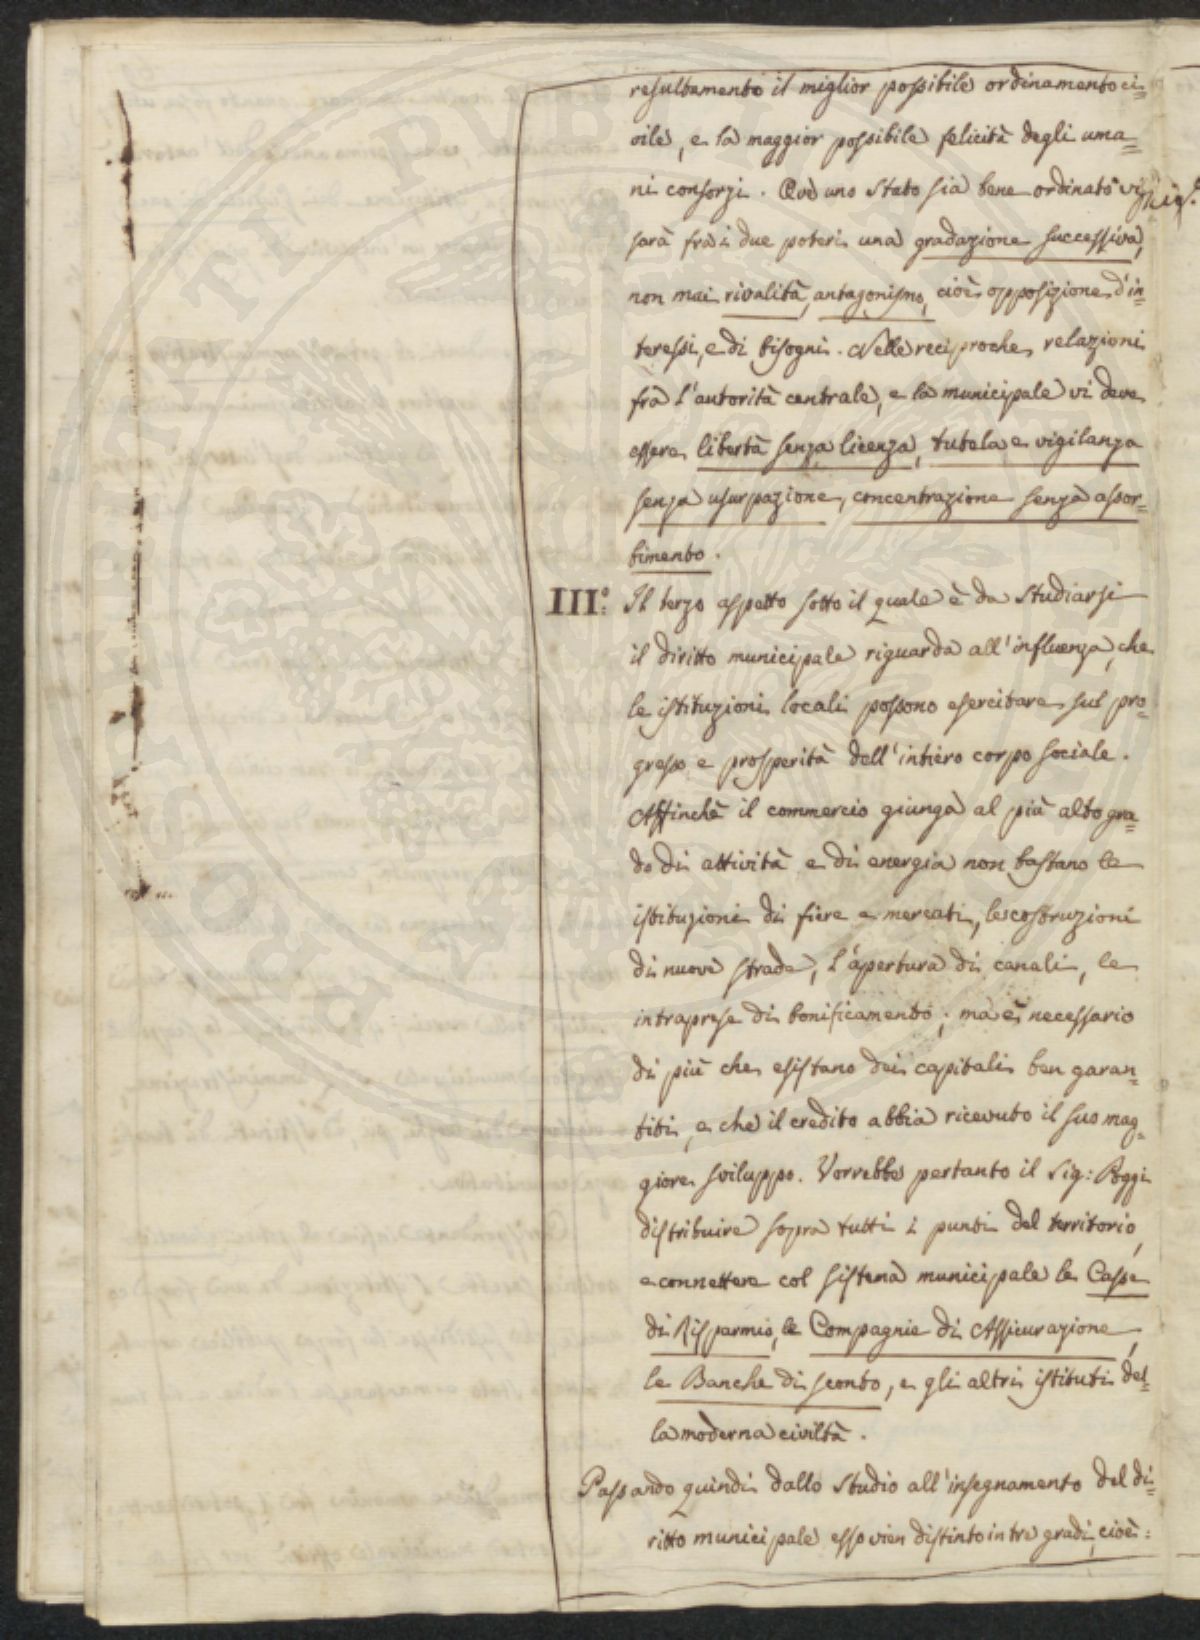 resultamento il miglior possibile ordinamento ci=
vile, e la maggior possibile felicità degli uma=
ni consorzj. Ove uno Stato sia bene ordinato vi
sarà fra i due poteri una gradazione successiva,
non mai rivalità, antagonismo, cioè opposizione d'in=
teressi, e di bisogni. Nelle reciproche relazioni
fra l'autorità centrale, e la municipale vi deve
essere libertà senza licenza, tutela e vigilanza
senza usurpazione, concentrazione senza assor=
bimento.
III.° Il terzo aspetto sotto il quale è da studiarsi
il diritto municipale riguarda all'influenza, che
le istituzioni locali possono esercitare sul pro=
gresso e prosperità dell'intiero corpo sociale.
Affinchè il commercio giunga al più alto gra=
do di attività e di energia non bastano le
istituzioni di fiere e mercati, le costruzioni
di nuove strade, l'apertura di canali, le
intraprese di bonificamento; ma è necessario
di più che esistano dei capitali ben garan=
titi, e che il credito abbia ricevuto il suo mag=
giore sviluppo. Vorrebbe pertanto il Sig: Poggi
distribuire sopra tutti i punti del territorio,
e connettere col sistema municipale le Casse
di Risparmio, le Compagnie di Assicurazione,
le Banche di sconto, e gli altri istituti del=
la moderna civiltà.
Passando quindi dallo studio all'insegnamento del di=
ritto municipale esso vien distinto in tre gradi, cioè: